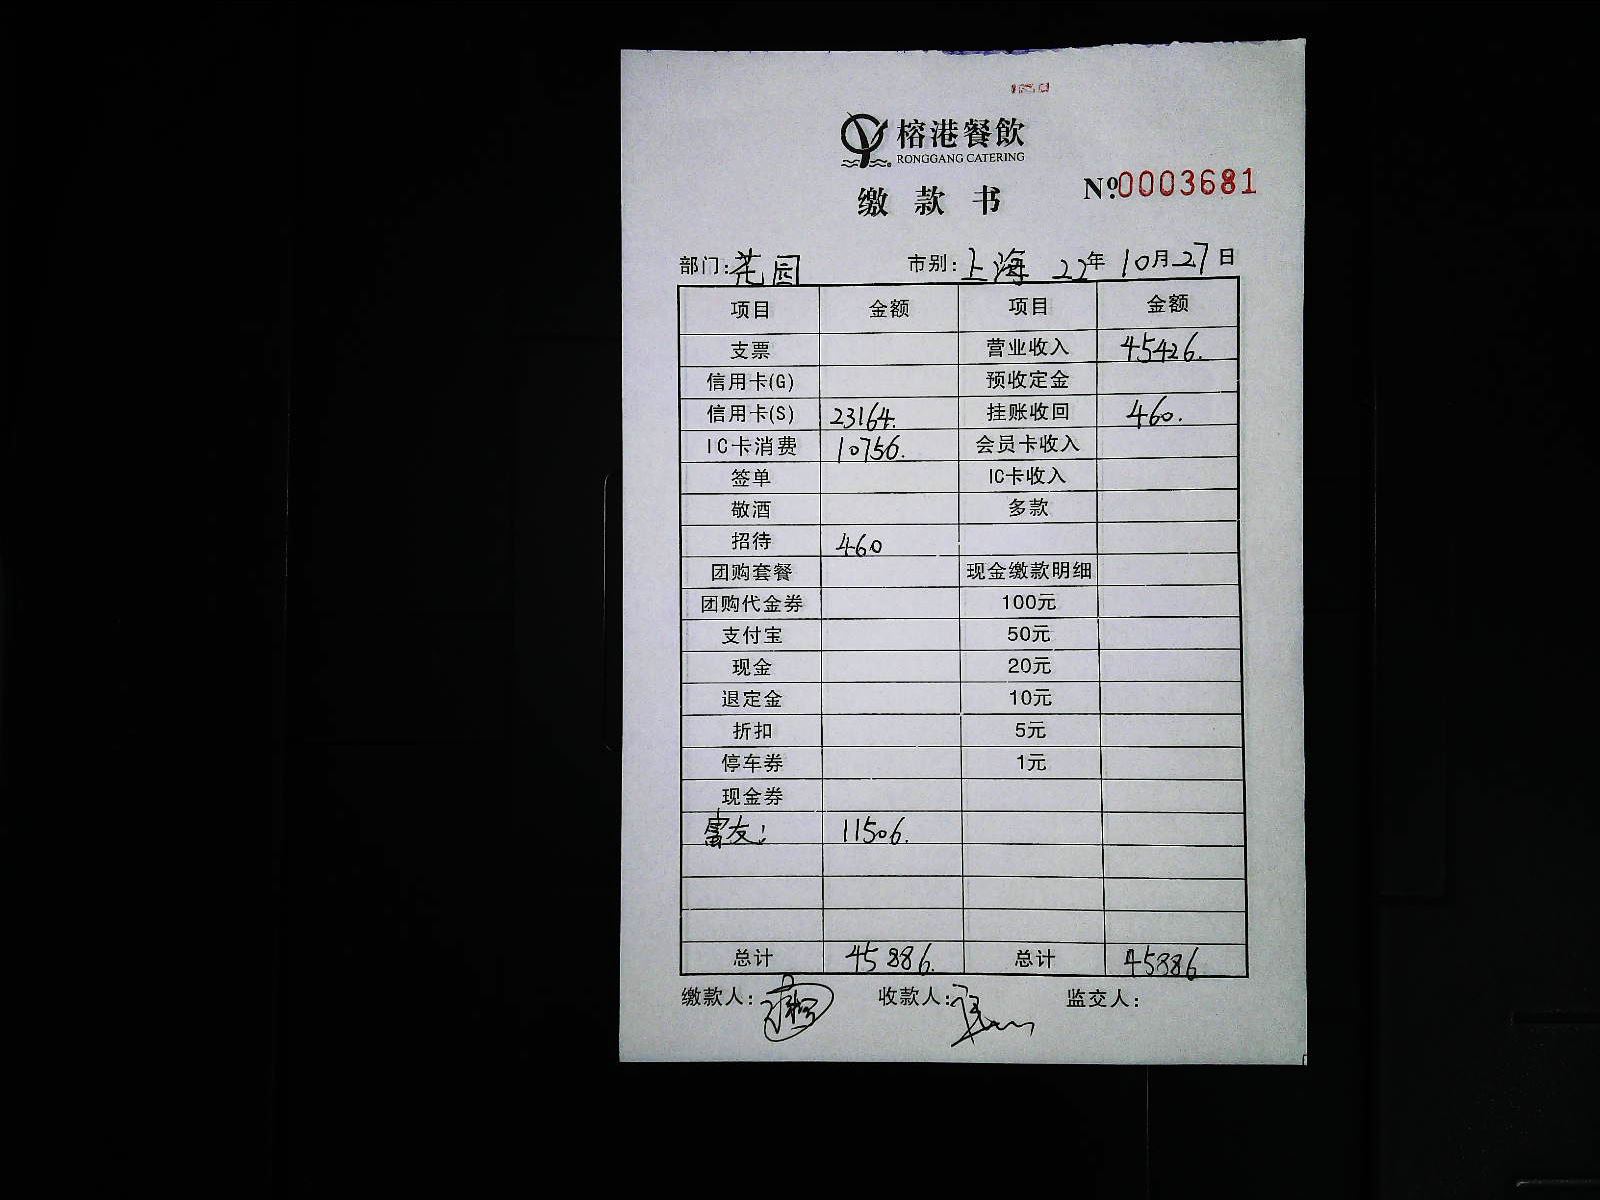 榕港餐飲
RONGGANG CATERING
缴款书 Nº.0003681
部门:花园 市别:上海 22年10月27日
项目 金额 项目 金额
支票 营业收入 45426.
信用卡(G) 预收定金
信用卡(S) 23164. 挂账收回 460.
IC卡消费 10756. 会员卡收入
签单 IC卡收入
敬酒 多款
招待 460
团购套餐 现金缴款明细
团购代金券 100元
支付宝 50元
现金 20元
退定金 10元
折扣 5元
停车券 1元
现金券
富友: 11506.
总计 45886. 总计 45886
缴款人: 收款人: 监交人: